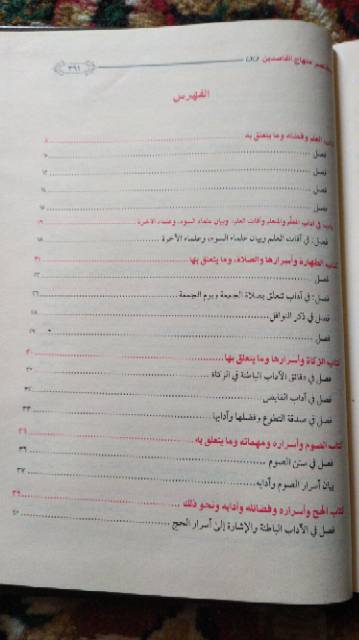 مختصر منهاج القاصدين
٣٩١
الفهرس
كتاب العلم وفضله وما يتعلق به ٨
فصل ١٠
فصل ١٢
فصل ١٤
فصل ١٥
باب: في آداب المعلم والمتعلم وآفات العلم، وبيان علماء السوء، وعلماء الآخرة ١٦
فصل: في آفات العلم وبيان علماء السوء، وعلماء الآخرة ١٨
كتاب الطهارة وأسرارها والصلاة، وما يتعلق بها ٢١
فصل ٢٣
فصل: في آداب تتعلق بصلاة الجمعة ويوم الجمعة ٢٦
فصل في ذكر النوافل ٢٨
فصل
كتاب الزكاة وأسرارها وما يتعلق بها ٣٠
فصل في دقائق الآداب الباطنة في الزكاة ٣٠
فصل في آداب القابض ٣٢
فصل في صدقة التطوع وفضلها وآدابها ٣٣
كتاب الصوم وأسراره ومهماته وما يتعلق به ٣٦
فصل في سنن الصوم ٣٦
بيان أسرار الصوم وآدابه ٣٧
كتاب الحج وأسراره وفضائله وآدابه ونحو ذلك ٣٩
فصل في الآداب الباطنة والإشارة إلى أسرار الحج ٤٠